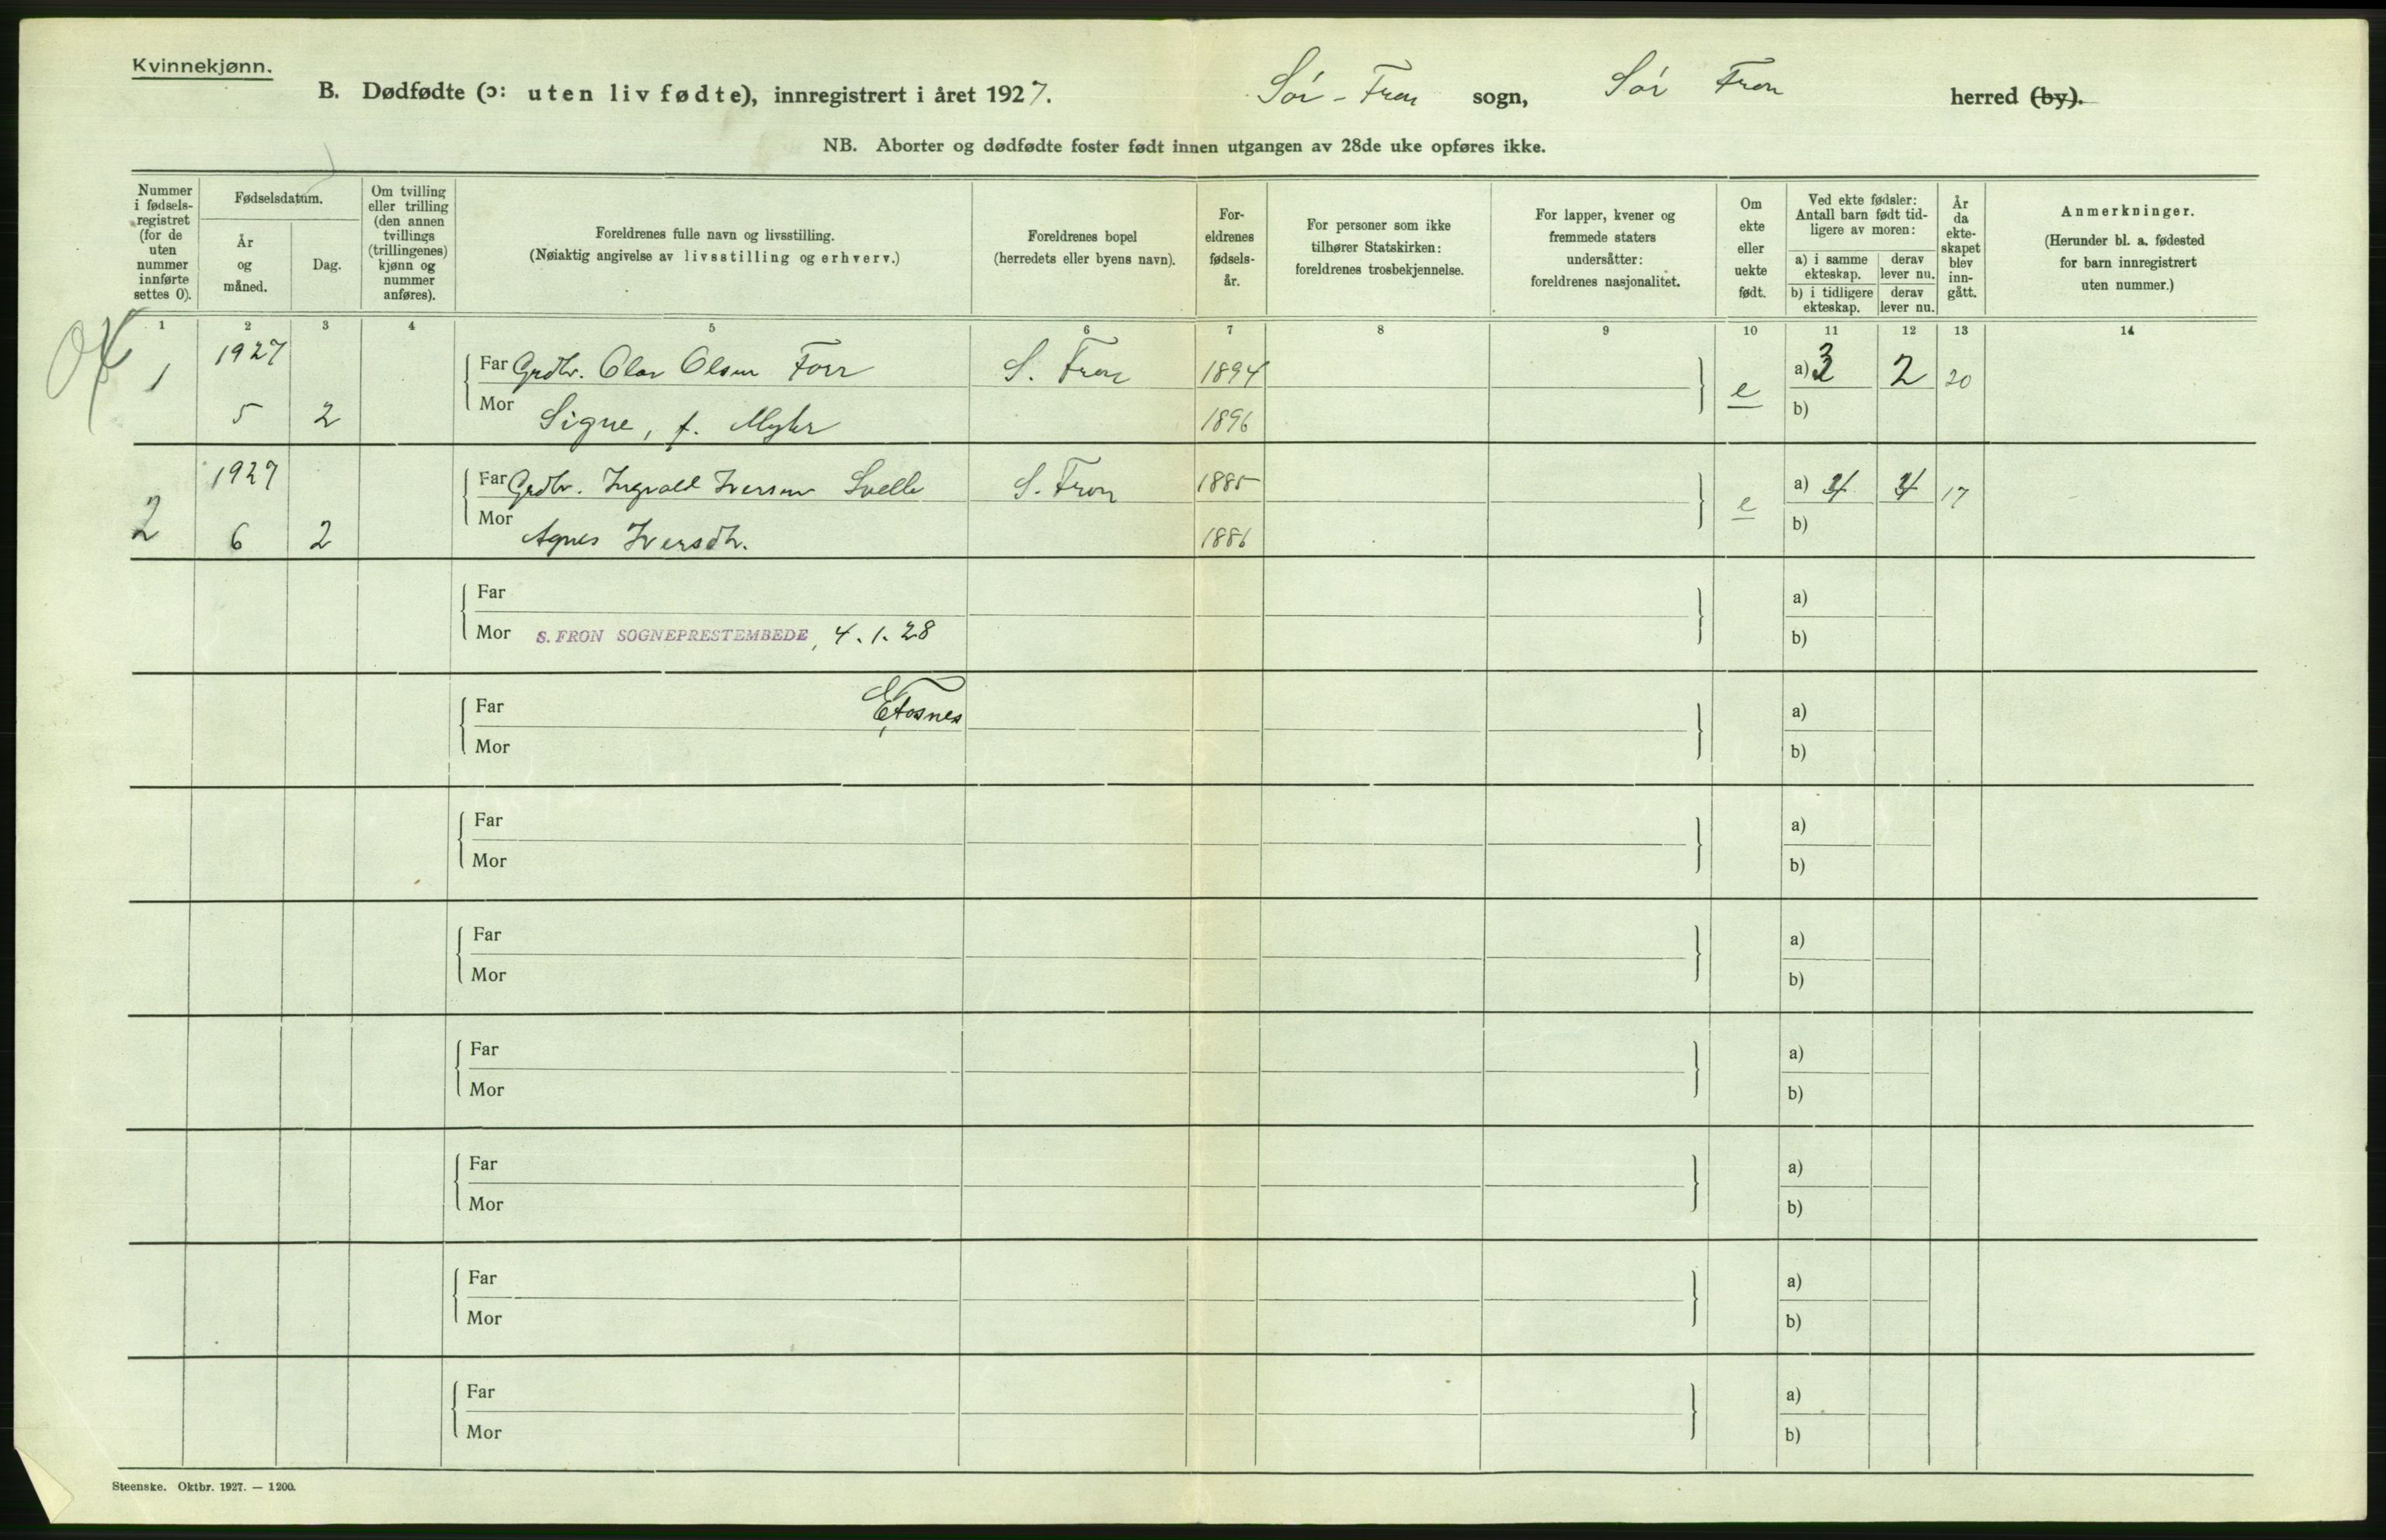 Kvinnekjønn.
B. Dødfødte (ɔ: uten liv fødte), innregistrert i året 1927. Sór-Fron sogn, Sór Fron herred (by).
NB. Aborter og dødfødte foster født innen utgangen av 28de uke opføres ikke.
Nummer i fødsels-registret (for de uten nummer innførte settes 0).
Fødselsdatum.
År og måned.
Dag.
Om tvilling eller trilling (den annen tvillings (trillingenes) kjønn og nummer anføres).
Foreldrenes fulle navn og livsstilling.
(Nøiaktig angivelse av livsstilling og erhverv.)
Foreldrenes bopel
(herredets eller byens navn).
For-eldrenes fødsels-år.
For personer som ikke tilhører Statskirken: foreldrenes trosbekjennelse.
For lapper, kvener og fremmede staters undersåtter: foreldrenes nasjonalitet.
Om ekte eller uekte født.
Ved ekte fødsler: Antall barn født tid-ligere av moren:
a) i samme ekteskap.
derav lever nu.
b) i tidligere ekteskap.
derav lever nu.
År da ekte-skapet blev inn-gått.
Anmerkninger.
(Herunder bl. a. fødested for barn innregistrert uten nummer.)
1 2 3 4 5 6 7 8 9 10 11 12 13 14
OK
1 1927 Far Grdbr. Olav Olsen Forr S. Fron 1894 e a) 3 2 20
5 2 Mor Signe, f. Myhr 1896 b)
2 1927 Far Grdbr. Ingvald Iversen Svelle S. Fron 1885 e a) 4 4 17
6 2 Mor Agnes Iversdtr. 1886 b)
Far a)
Mor S. FRON SOGNEPRESTEMBEDE, 4.1.28 b)
Far a)
Mor b)
Far a)
Mor b)
Far a)
Mor b)
Far a)
Mor b)
Far a)
Mor b)
Far a)
Mor b)
Far a)
Mor b)
Steenske. Oktbr. 1927. — 1200.